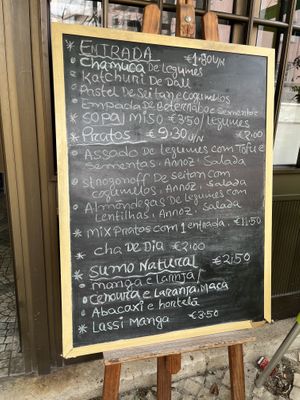 * ENTRADA €1.80 U/N
• Chamuça De legumes
• Katchuri De Dall
• Pastel De Seitan e cogumelos
• Empada De Beterraba e Sementes
* SOPA/ MISO €3.50/ legumes €2.00
* PRatos €9.30 U/N
* Assado De legumes com Tofu e
Sementas, Arroz, Salada
* Stnogonoff De seitan com
cogumelos, Arroz, Salada
* Almôndegas De legumes com
Lentilhas, Arroz, Salada
* mix Pratos com 1 entrada, €11.50
* cha De Dia €2.00
* Sumo Natural €2.50
• manga e laranja/
• Cenoura e Laranja, maça
• Abacaxi e hortelã
* Lassi Manga €3.50